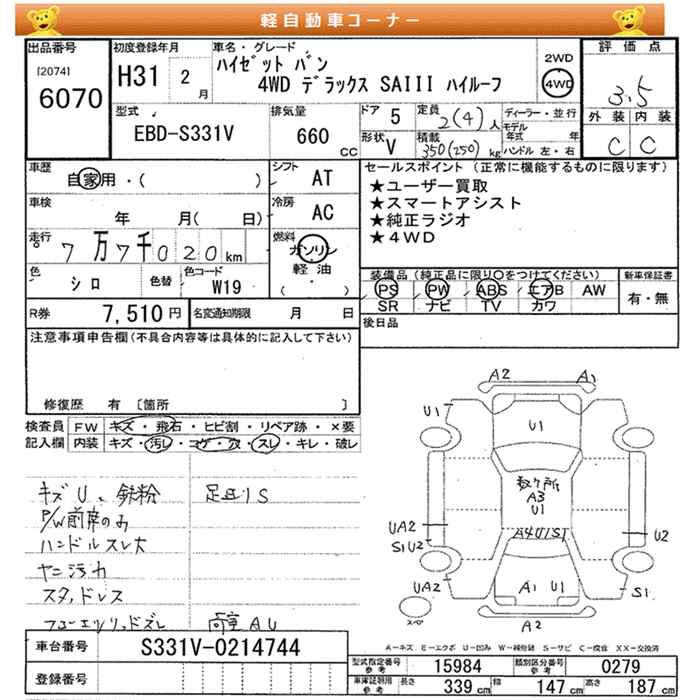 軽自動車コーナー
出品番号 初度登録年月 車名・グレード 評価点
[2074] 6070
H31 2 月
ハイゼット バン
4WD デラックス SAIII ハイルーフ
2WD
4WD
3.5
外装 内装
C C
型式 EBD-S331V
排気量 660 CC
ドア 5
形状 V
定員 2(4)人
積載 350(250)kg
ディーラー・並行
モデル年式 年
ハンドル 左・右
車歴 自家用・( )
シフト AT
車検 年 月( 日)
冷房 AC
走行 7万7千020km
燃料 ガソリン
軽油
( )
色 シロ 色替 色コード W19
セールスポイント (正常に機能するものに限ります)
★ユーザー買取
★スマートアシスト
★純正ラジオ
★4WD
装備品(純正品に限り○をつけてください) 新車保証書
PS PW ABS エアB AW 有・無
SR ナビ TV カワ
後日品
R券 7,510円 名変通知期限 月 日
注意事項申告欄(不具合内容等は具体的に記入して下さい)
修復歴 有 〔箇所 〕
検査員記入欄
FW キズ・飛石・ヒビ割・リペア跡・×要
内装 キズ・汚レ・コゲ・穴・スレ・キレ・破レ
キズU、鉄粉
P/W前席のみ
ハンドルスレ大
ヤニ汚れ
スタッドレス
足回りS
AU
A2 A1
U1 U1
数ヶ所
A3
U1
UA2 A4U1S1 U2
S1U2
UA2 A1 U1 S1
スペ
A2
A−キズ E−エクボ U−凹み W−補修跡 S−サビ C−腐食 XX−交換済
車台番号 S331V-0214744
登録番号
型式指定番号 参考 15984 類別区分番号 参考 0279
車庫証明用 参考 長さ 339cm 幅 147cm 高さ 187cm